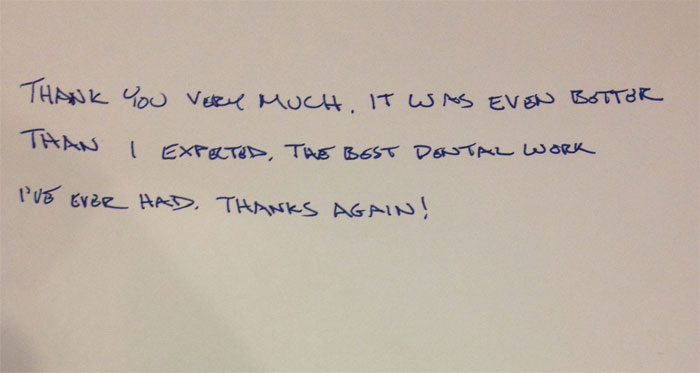 THANK YOU VERY MUCH. IT WAS EVEN BETTER
THAN I EXPECTED. THE BEST DENTAL WORK
I'VE EVER HAD. THANKS AGAIN!